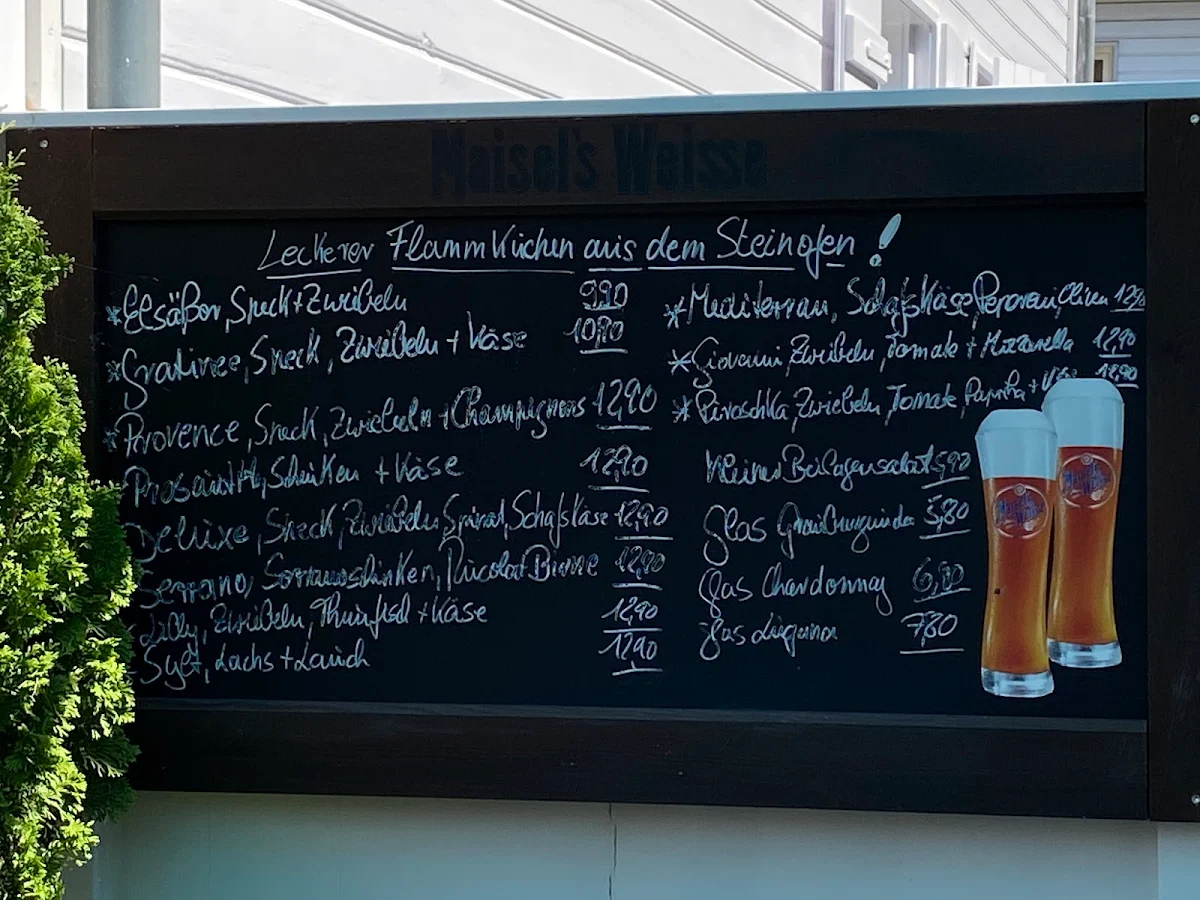 Maisel's Weisse
Leckerer Flammkuchen aus dem Steinofen!
*Elsäßer, Speck+Zwiebeln 9,90
*Gratinee, Speck, Zwiebeln + Käse 10,90
*Provence, Speck, Zwiebeln + Champignons 12,90
Prosciutto, Schinken + Käse 12,90
Deluxe, Speck, Zwiebeln, Spinat, Schafskäse 12,90
Serrano, Serranoschinken, Rucola+Birne 12,90
Lilly, Zwiebeln, Thunfisch + Käse 12,90
Sylt, Lachs + Lauch 12,90
*Mediterran, Schafskäse, Peperoni, Oliven 12,90
*Giovanni, Zwiebeln, Tomate + Mozzarella 12,90
*Piroschka, Zwiebeln, Tomate, Paprika + 12,90
Kleiner Beilagensalat 5,90
Glas Grauburgunder 5,80
Glas Chardonnay 6,80
Glas Lugana 7,80